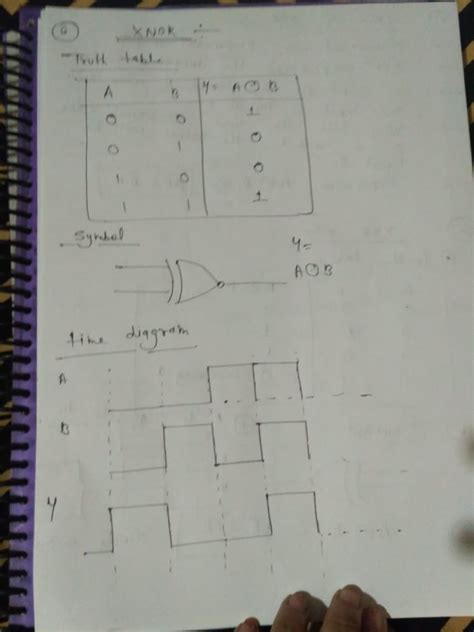 6 XNOR :-
Truth table
A B Y= A⊙B
0 0 1
0 1 0
1 0 0
1 1 1
Symbol
Y=
A⊙B
time diagram
A
B
Y